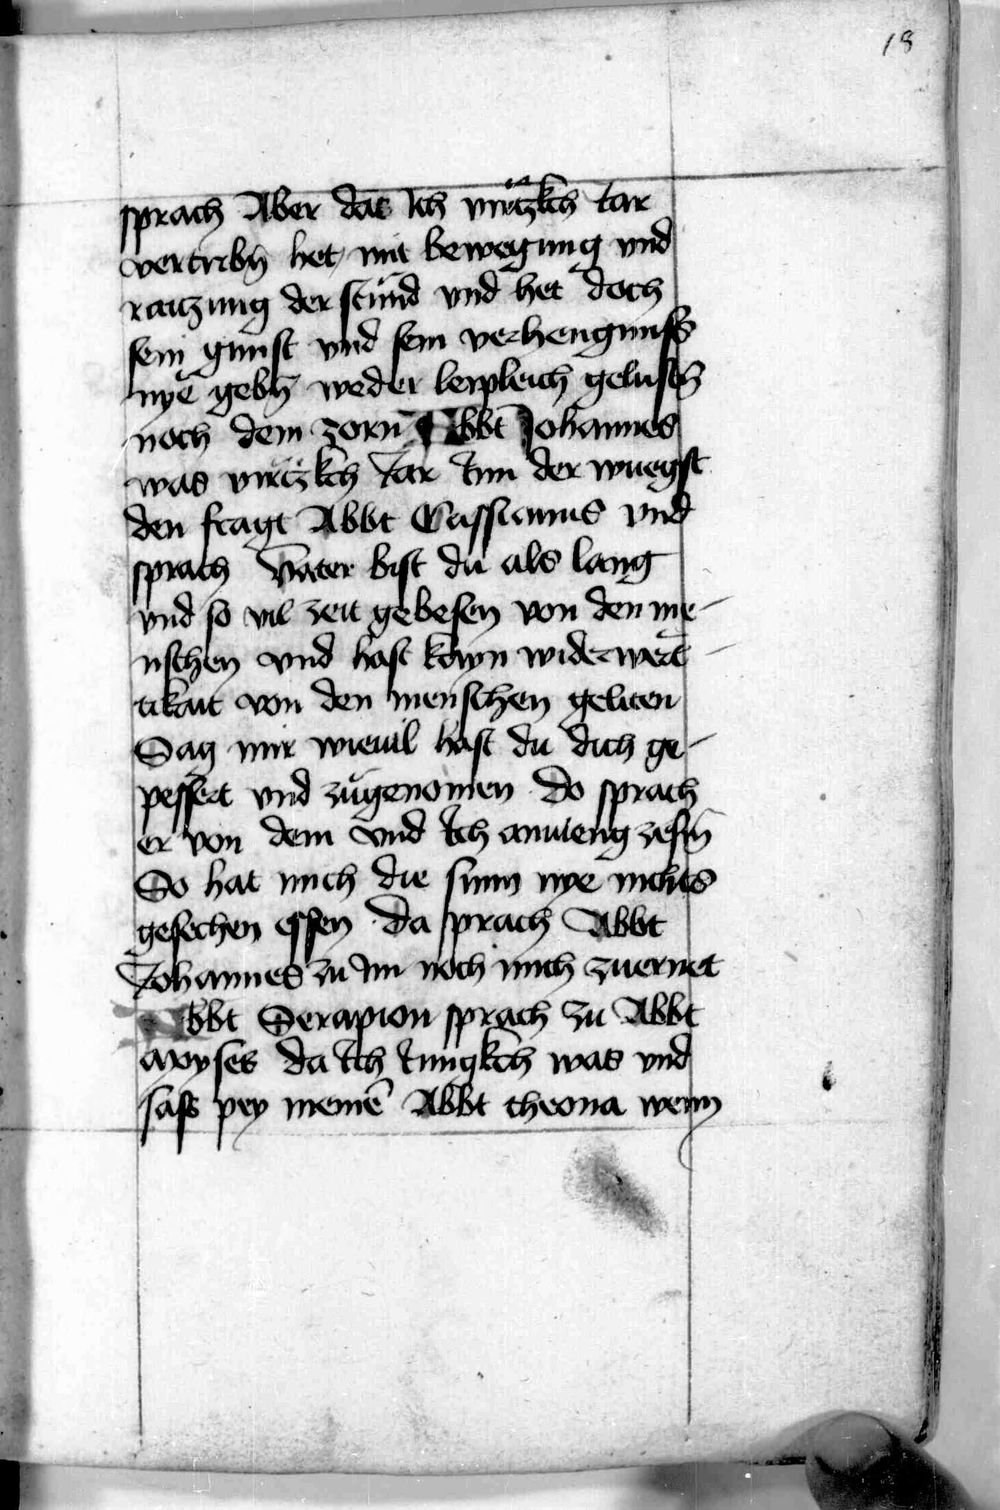 18
sprach Aber das Ich virtzkch Iar
vertribn̄ het mit bewegung vnd
raitzung der sund vnd het doch
sein gunst vnd sein verhengnuss
nye gebn̄ weder leipleich gelustn̄
noch dem zorn Abbt Johannes
was virtzkch Iar Inn der wuegst
den fragt Abbt Cassianus vnd
sprach Vater bist du als lang
vnd so vil zeit gebesen von den me-
nschen vnd hast kayn widerwert-
tikait von den menschen geliten
Sag mir wieuil hast du dich ge-
pessert vnd zugenomen Do sprach
er von dem vnd Ich anuieng zesein̄
So hat mich die sunn nye nichts
gesechen essen Da sprach Abbt
Johannes zu Im noch mich zuernet
Abbt Serapion sprach zu Abbt
Moyses da Ich Iungkch was vnd
sass pey meinē Abbt theona wenn